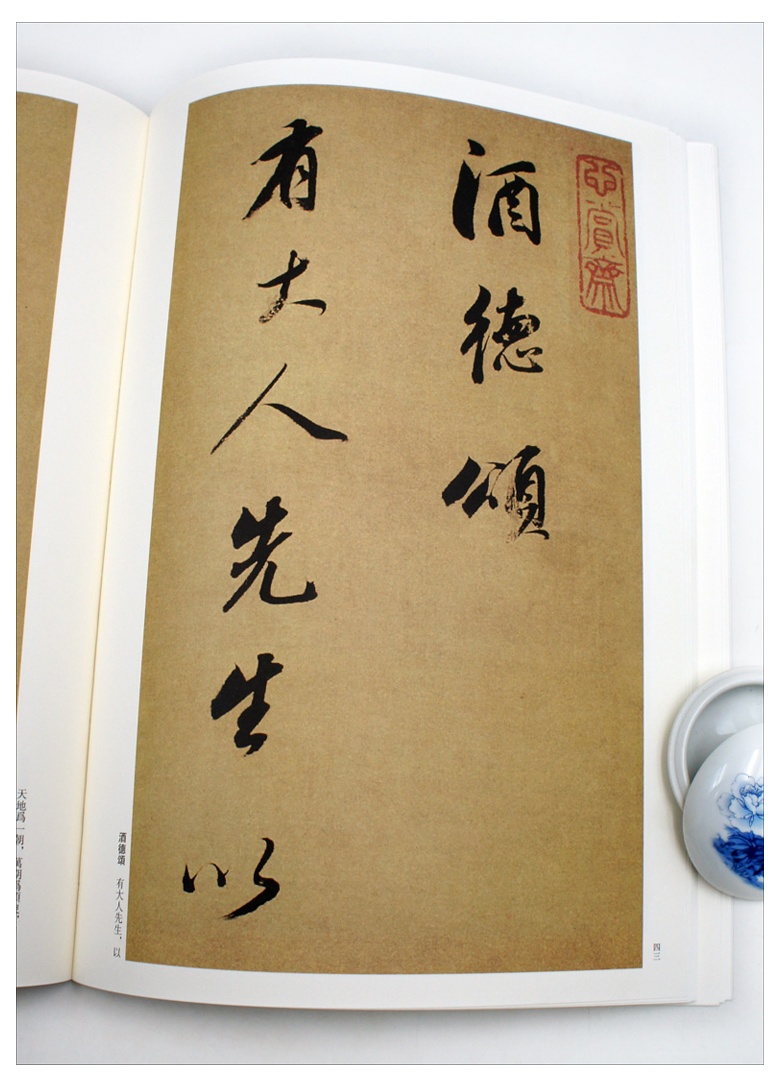 酒德頌
有大人先生以
酒德頌 有大人先生，以
四三
天地爲一朝，萬期爲須臾